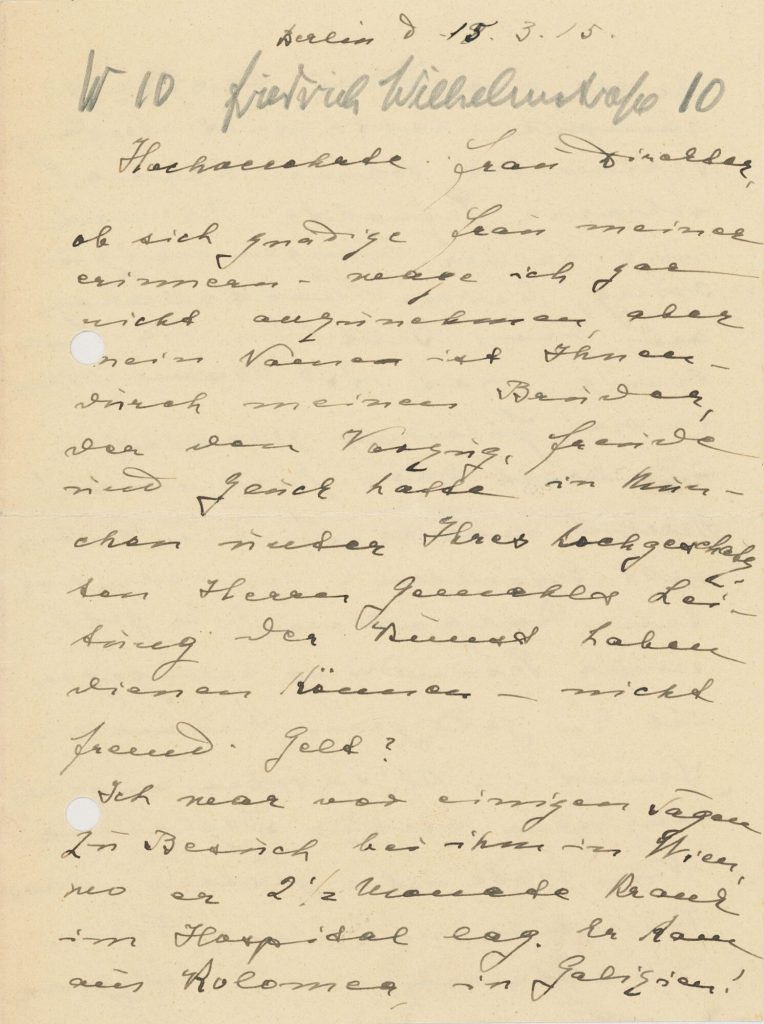 Berlin d 15. 3. 15.
W 10 Friedrich Wilhelmstraße 10
Hochverehrte Frau Direktor,
ob sich gnädige Frau meiner
erinnern – wage ich gar
nicht anzunehmen, aber
mein Name ist Ihnen –
durch meinen Bruder,
der den Vorzug, Freude
und Glück hatte in Mün-
chen unter Ihres hochgeschätz-
ten Herrn Gemahles Lei-
tung der Kunst haben
dienen können – nicht
fremd. Gelt?
Ich war vor einigen Tagen
zu Besuch bei ihm in Wien,
wo er 2 1/2 Monate krank
im Hospital lag. Er kam
aus Kolomea, in Galizien!